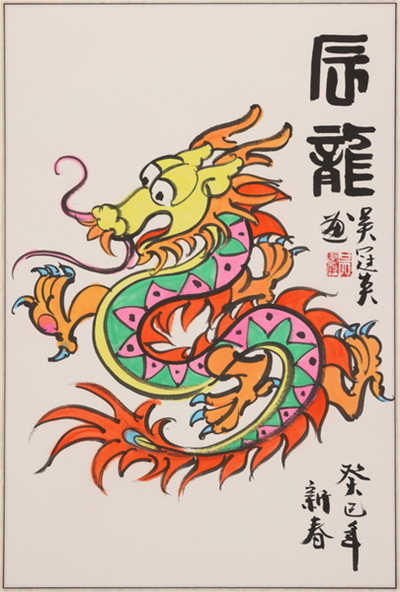 辰龍
吴冠英
画
癸巳年
新春